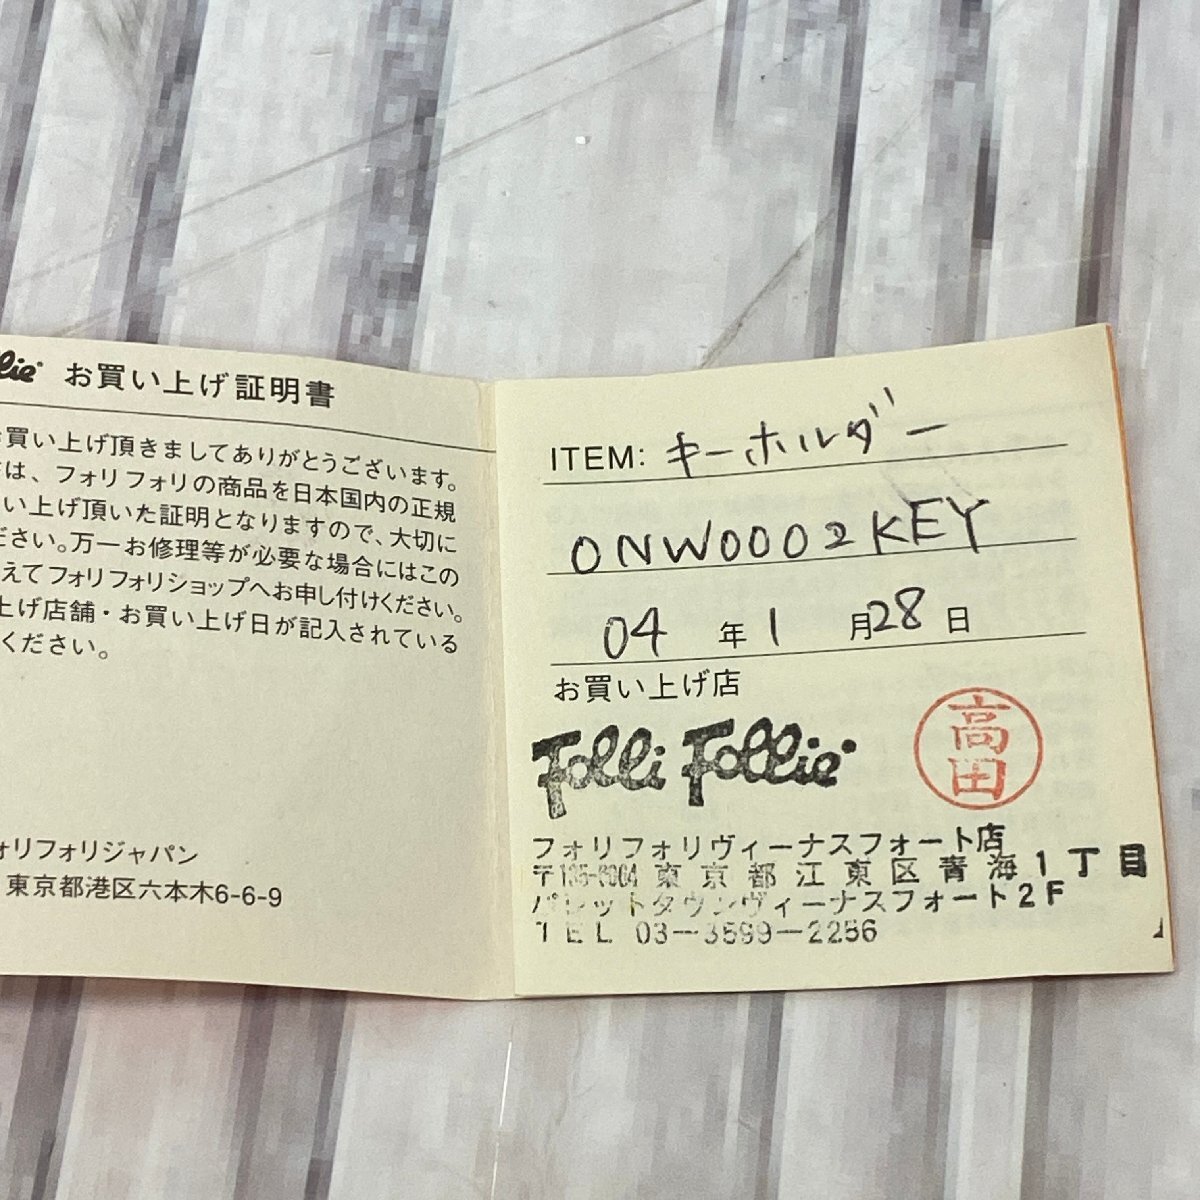 お買い上げ証明書
買い上げ頂きましてありがとうございます。
は、フォリフォリの商品を日本国内の正規
い上げ頂いた証明となりますので、大切に
ださい。万一お修理等が必要な場合にはこの
えてフォリフォリショップへお申し付けください。
上げ店舗・お買い上げ日が記入されている
ください。
ォリフォリジャパン
東京都港区六本木6-6-9
ITEM: キーホルダー
ONW0002KEY
04 年 1 月 28 日
お買い上げ店
Folli Follie
高田
フォリフォリヴィーナスフォート店
東京都江東区青海1丁目
パレットタウンヴィーナスフォート2F
TEL 03-3599-2256